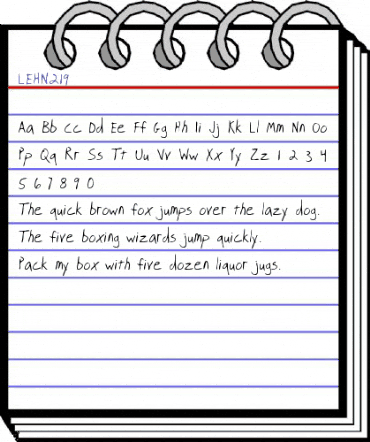 LEHN219
Aa Bb Cc Dd Ee Ff Gg Hh Ii Jj Kk Ll Mm Nn Oo
Pp Qq Rr Ss Tt Uu Vv Ww Xx Yy Zz 1 2 3 4
5 6 7 8 9 0
The quick brown fox jumps over the lazy dog.
The five boxing wizards jump quickly.
Pack my box with five dozen liquor jugs.